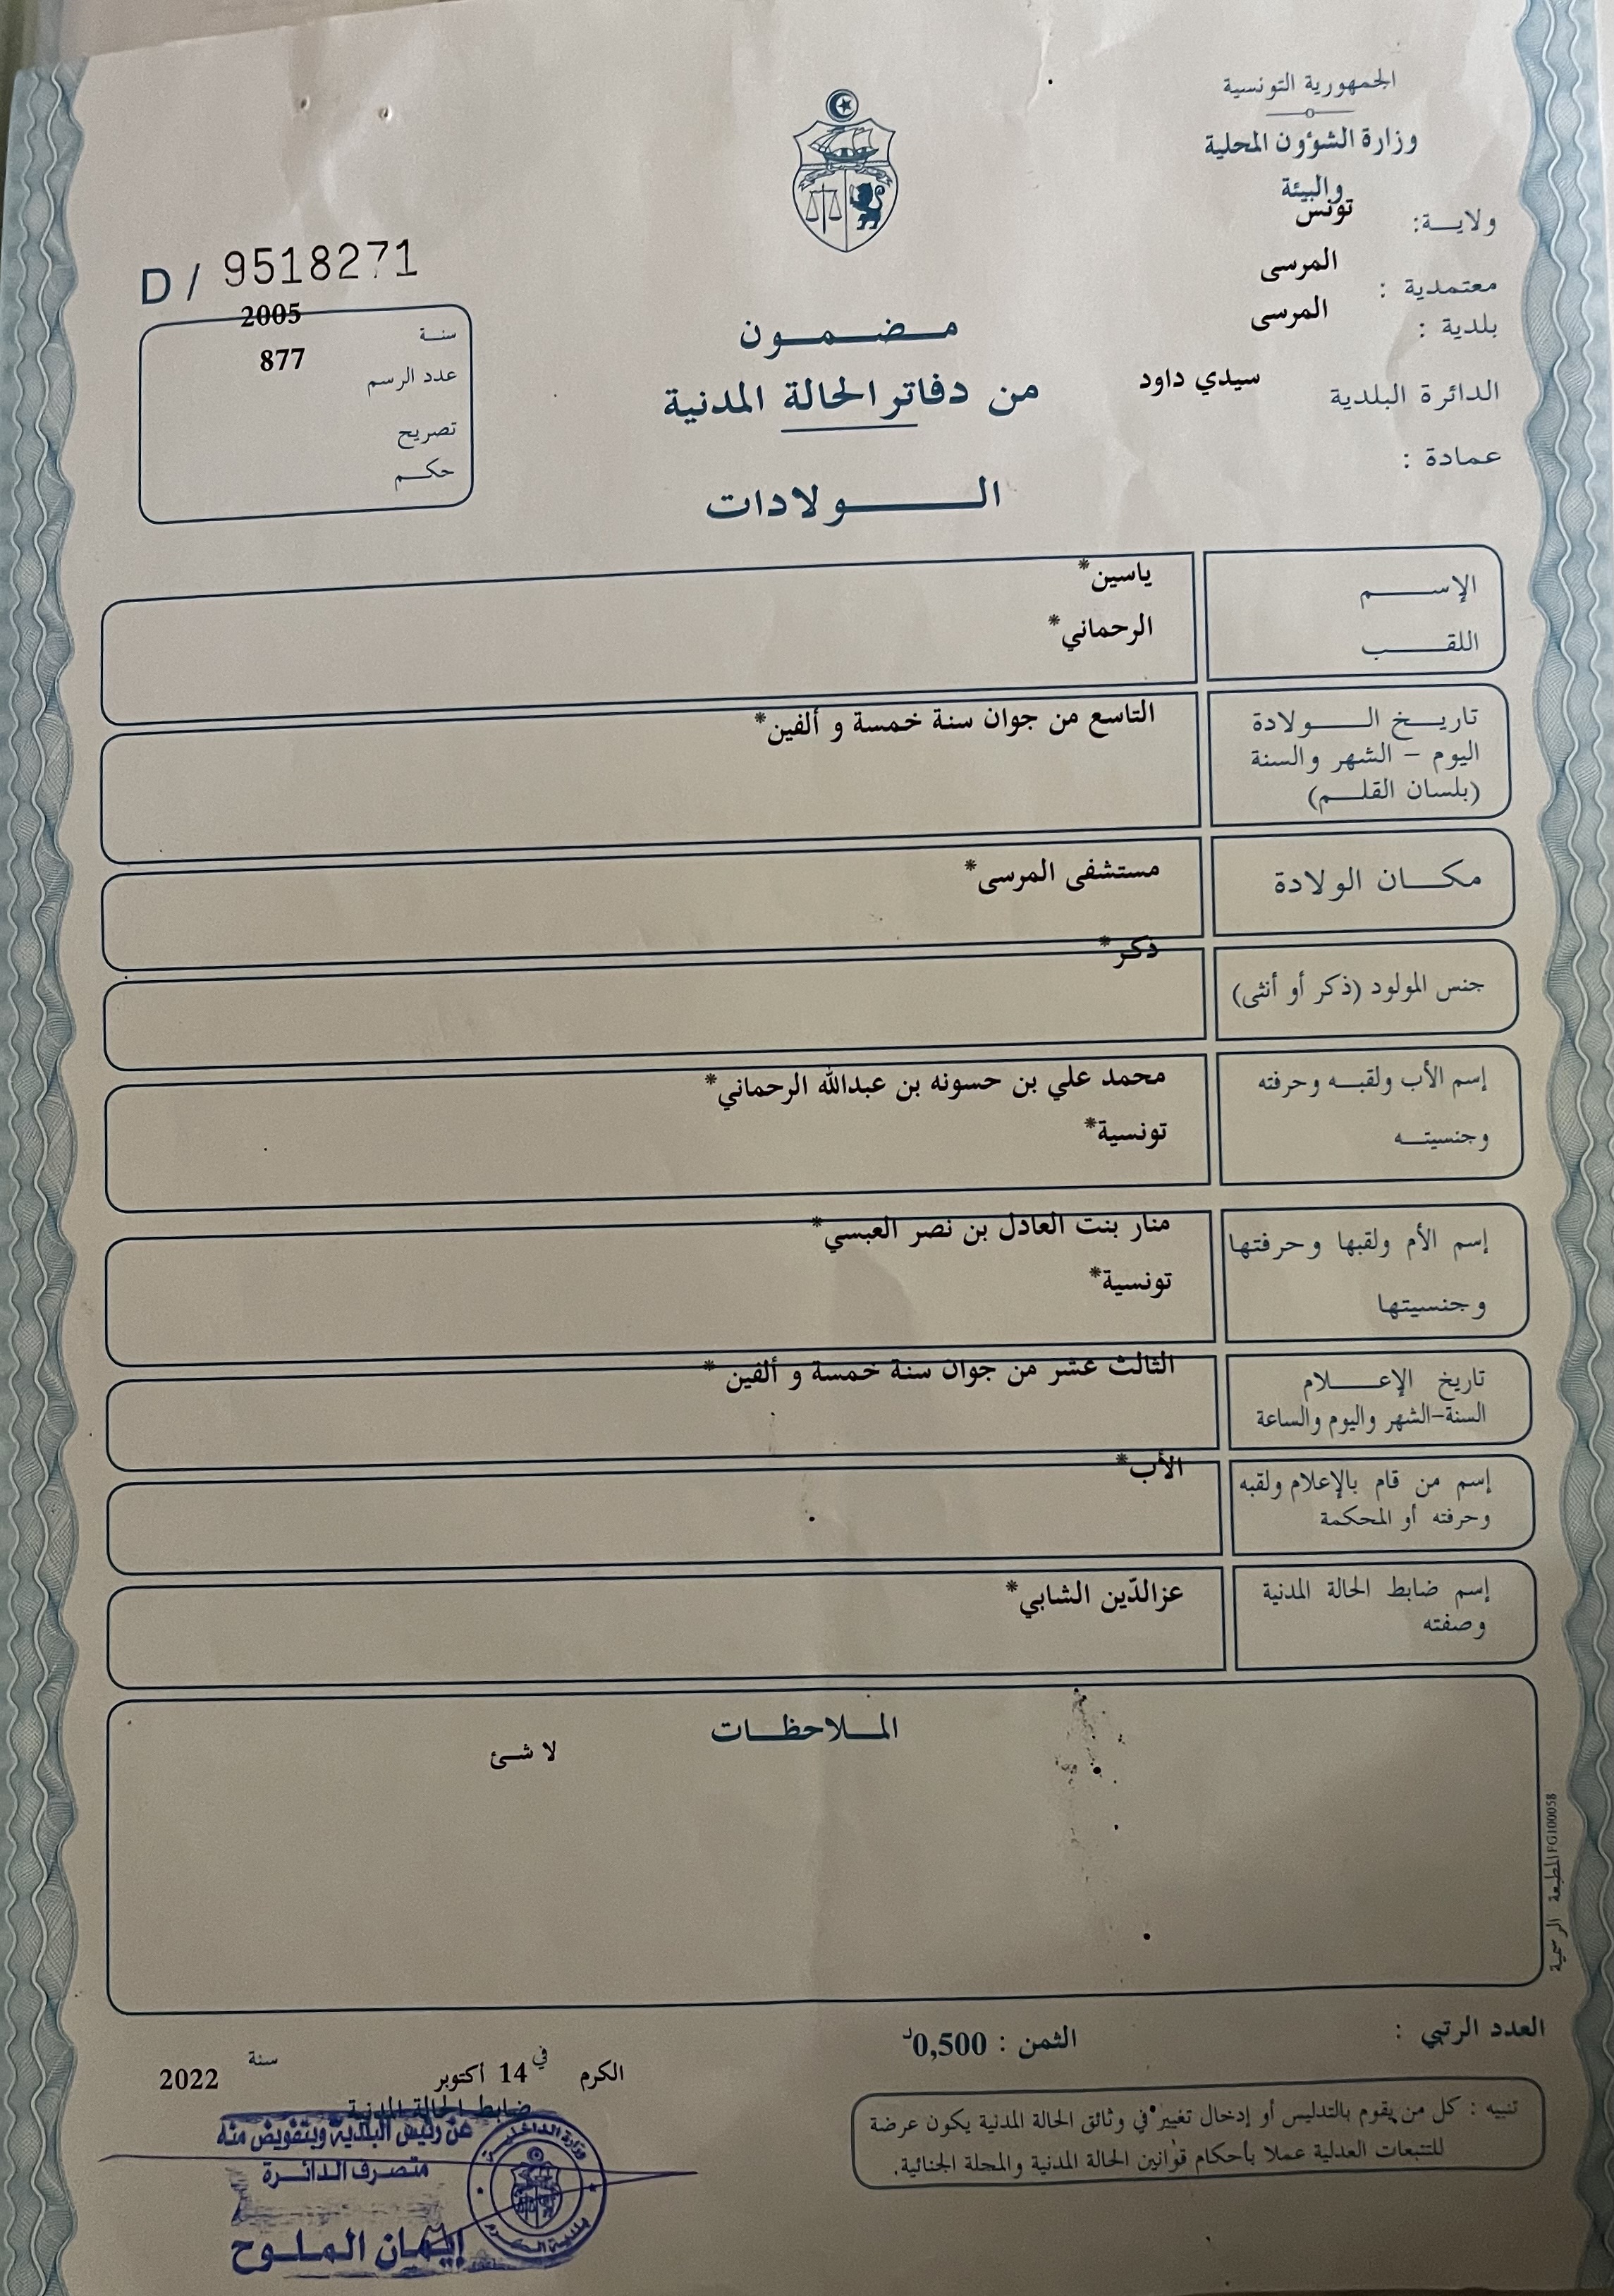 الجمهورية التونسية
وزارة الشؤون المحلية
والبيئة
ولاية: تونس
معتمدية : المرسى
بلدية : المرسى
الدائرة البلدية سيدي داود
عمادة :
D / 9518271
سنة 2005
عدد الرسم 877
تصريح
حكم
مضمون
من دفاتر الحالة المدنية
الولادات
الإسم ياسين*
اللقب الرحماني*
تاريخ الولادة التاسع من جوان سنة خمسة و ألفين*
اليوم - الشهر والسنة
(بلسان القلم)
مكان الولادة مستشفى المرسى*
جنس المولود (ذكر أو أنثى) ذكر*
إسم الأب ولقبه وحرفته محمد علي بن حسونه بن عبدالله الرحماني*
وجنسيته تونسية*
إسم الأم ولقبها وحرفتها منار بنت العادل بن نصر العبسي*
وجنسيتها تونسية*
تاريخ الإعلام الثالث عشر من جوان سنة خمسة و ألفين *
السنة-الشهر واليوم والساعة
إسم من قام بالإعلام ولقبه الأب*
وحرفته أو المحكمة
إسم ضابط الحالة المدنية عزالدّين الشابي*
وصفته
الملاحظات
لا شئ
المطبعة الرسمية FG100058
العدد الرتبي :
الثمن : 0,500د
الكرم في 14 أكتوبر سنة 2022
ضابط الحالة المدنية
عن رئيس البلدية وبتفويض منه
متصرف الدائرة
إيمان الملوح
وزارة الداخلية
بلدية الكرم
تنبيه : كل من يقوم بالتدليس أو إدخال تغيير في وثائق الحالة المدنية يكون عرضة
للتتبعات العدلية عملا بأحكام قوانين الحالة المدنية والمجلة الجنائية.